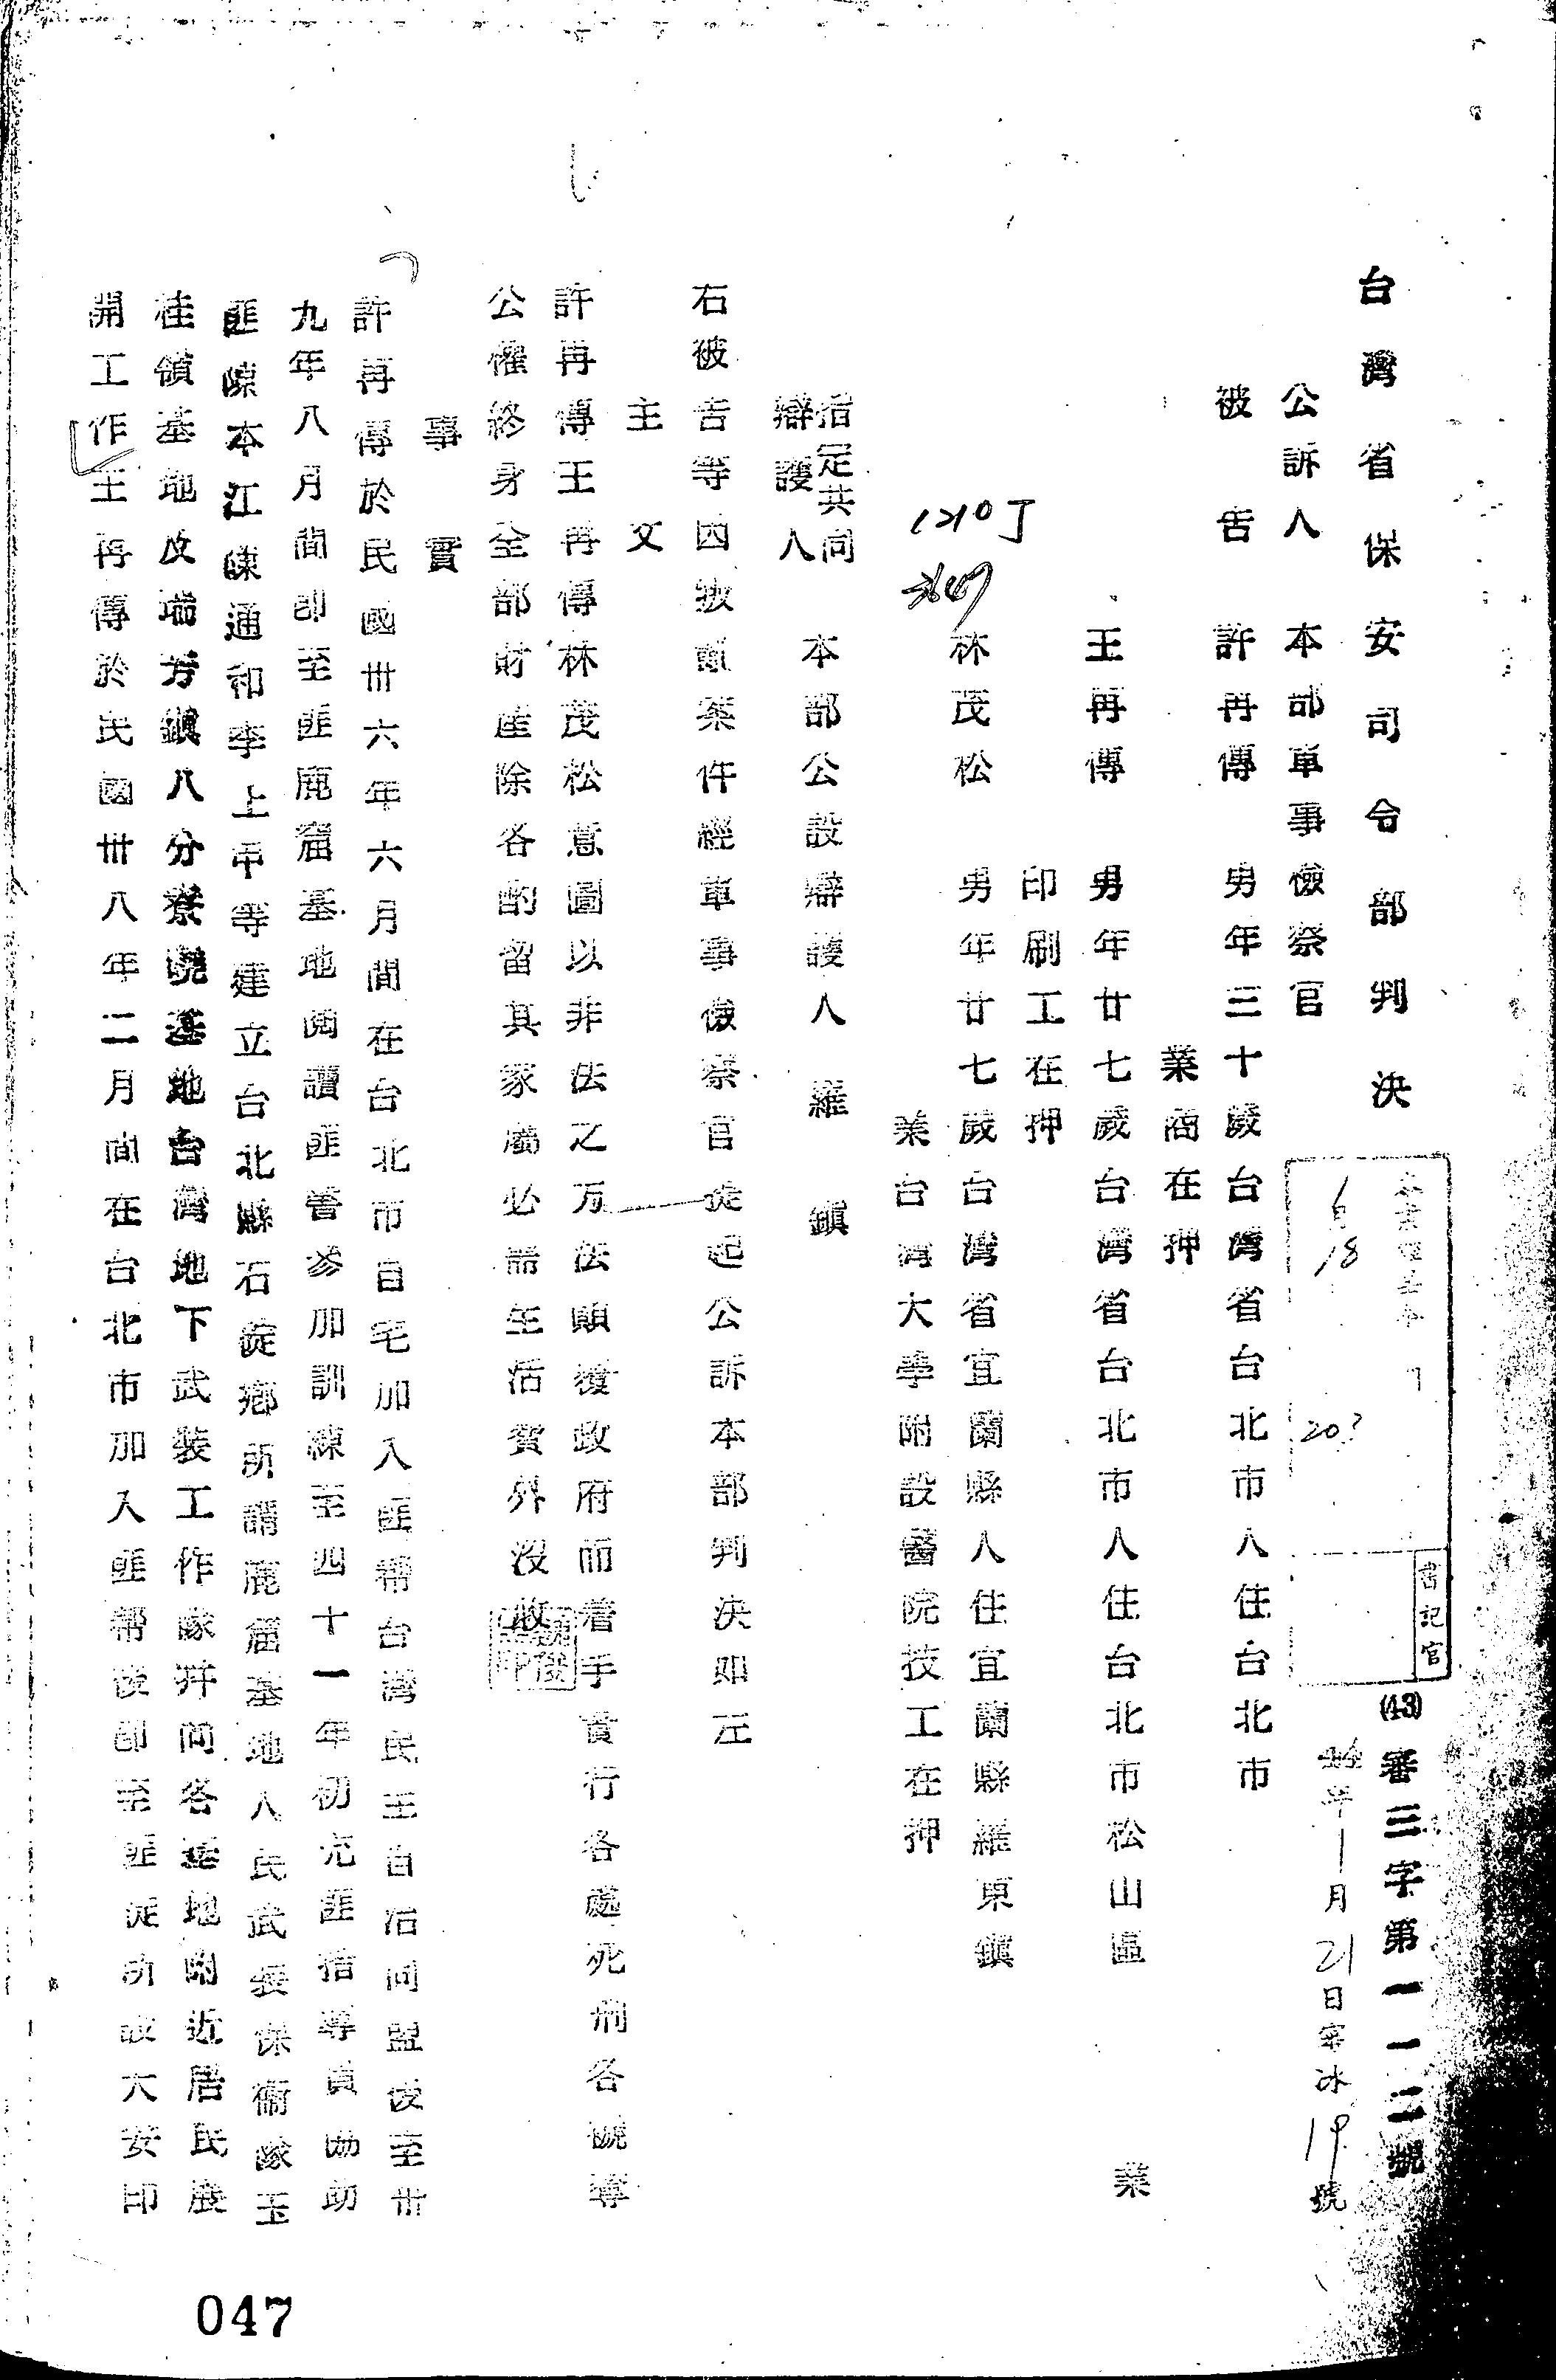 台灣省保安司令部判決
(43)審三字第一一二號
書記官
1月18
20?
年1月21日
19號
公訴人 本部軍事檢察官
被告 許再傳 男年三十歲台灣省台北市人住台北市
業商在押
王再傳 男年廿七歲台灣省台北市人住台北市松山區 業
印刷工在押
林茂松 男年廿七歲台灣省宜蘭縣人住宜蘭縣羅東鎮
業台灣大學附設醫院技工在押
1210
指定共同
辯護人 本部公設辯護人 羅鎮
右被告等因叛亂案件經軍事檢察官提起公訴本部判決如左
主文
許再傳王再傳林茂松意圖以非法之方法顛覆政府而着手實行各處死刑各褫奪
公權終身全部財產除各酌留其家屬必需生活費外沒收
事實
許再傳於民國卅六年六月間在台北市自宅加入匪幫台灣民主自治同盟後至卅
九年八月間即至匪鹿窟基地閱讀匪書參加訓練至四十一年初充匪指導員協助
匪陳本江陳通和李上甲等建立台北縣石碇鄉所謂鹿窟基地人民武裝保衛隊玉
桂嶺基地及瑞芳鎮八分寮曉基地台灣地下武裝工作隊幷向各基地附近居民展
開工作王再傳於民國卅八年二月間在台北市加入匪幫後即至匪徒所設大安印
047